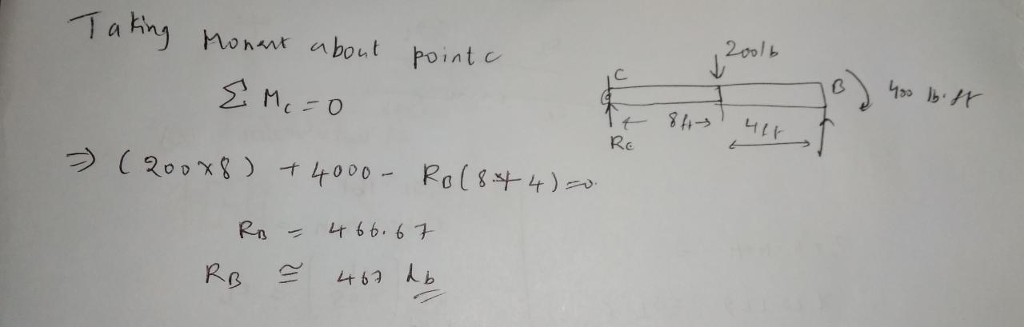 Taking Moment about point c
Σ Mc = 0
⇒ (200×8) + 4000 - RB(8+4)=0.
RB = 466.67
RB ≅ 467 lb
200lb
C
B
400 lb.ft
8ft
4ft
Rc